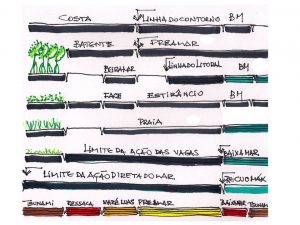 COSTA LINHA DO CONTORNO BM
BATENTE PREAMAR
BEIRAMAR LINHA DO LITORAL BM
FACE ESTIRÂNCIO BM
PRAIA
LIMITE DA AÇÃO DAS VAGAS BAIXAMAR
LIMITE DA AÇÃO DIRETA DO MAR RECUO MÁX
TSUNAMI RESSACA MARÉ LUAS PREAMAR BAIXAMAR TSUNAMI